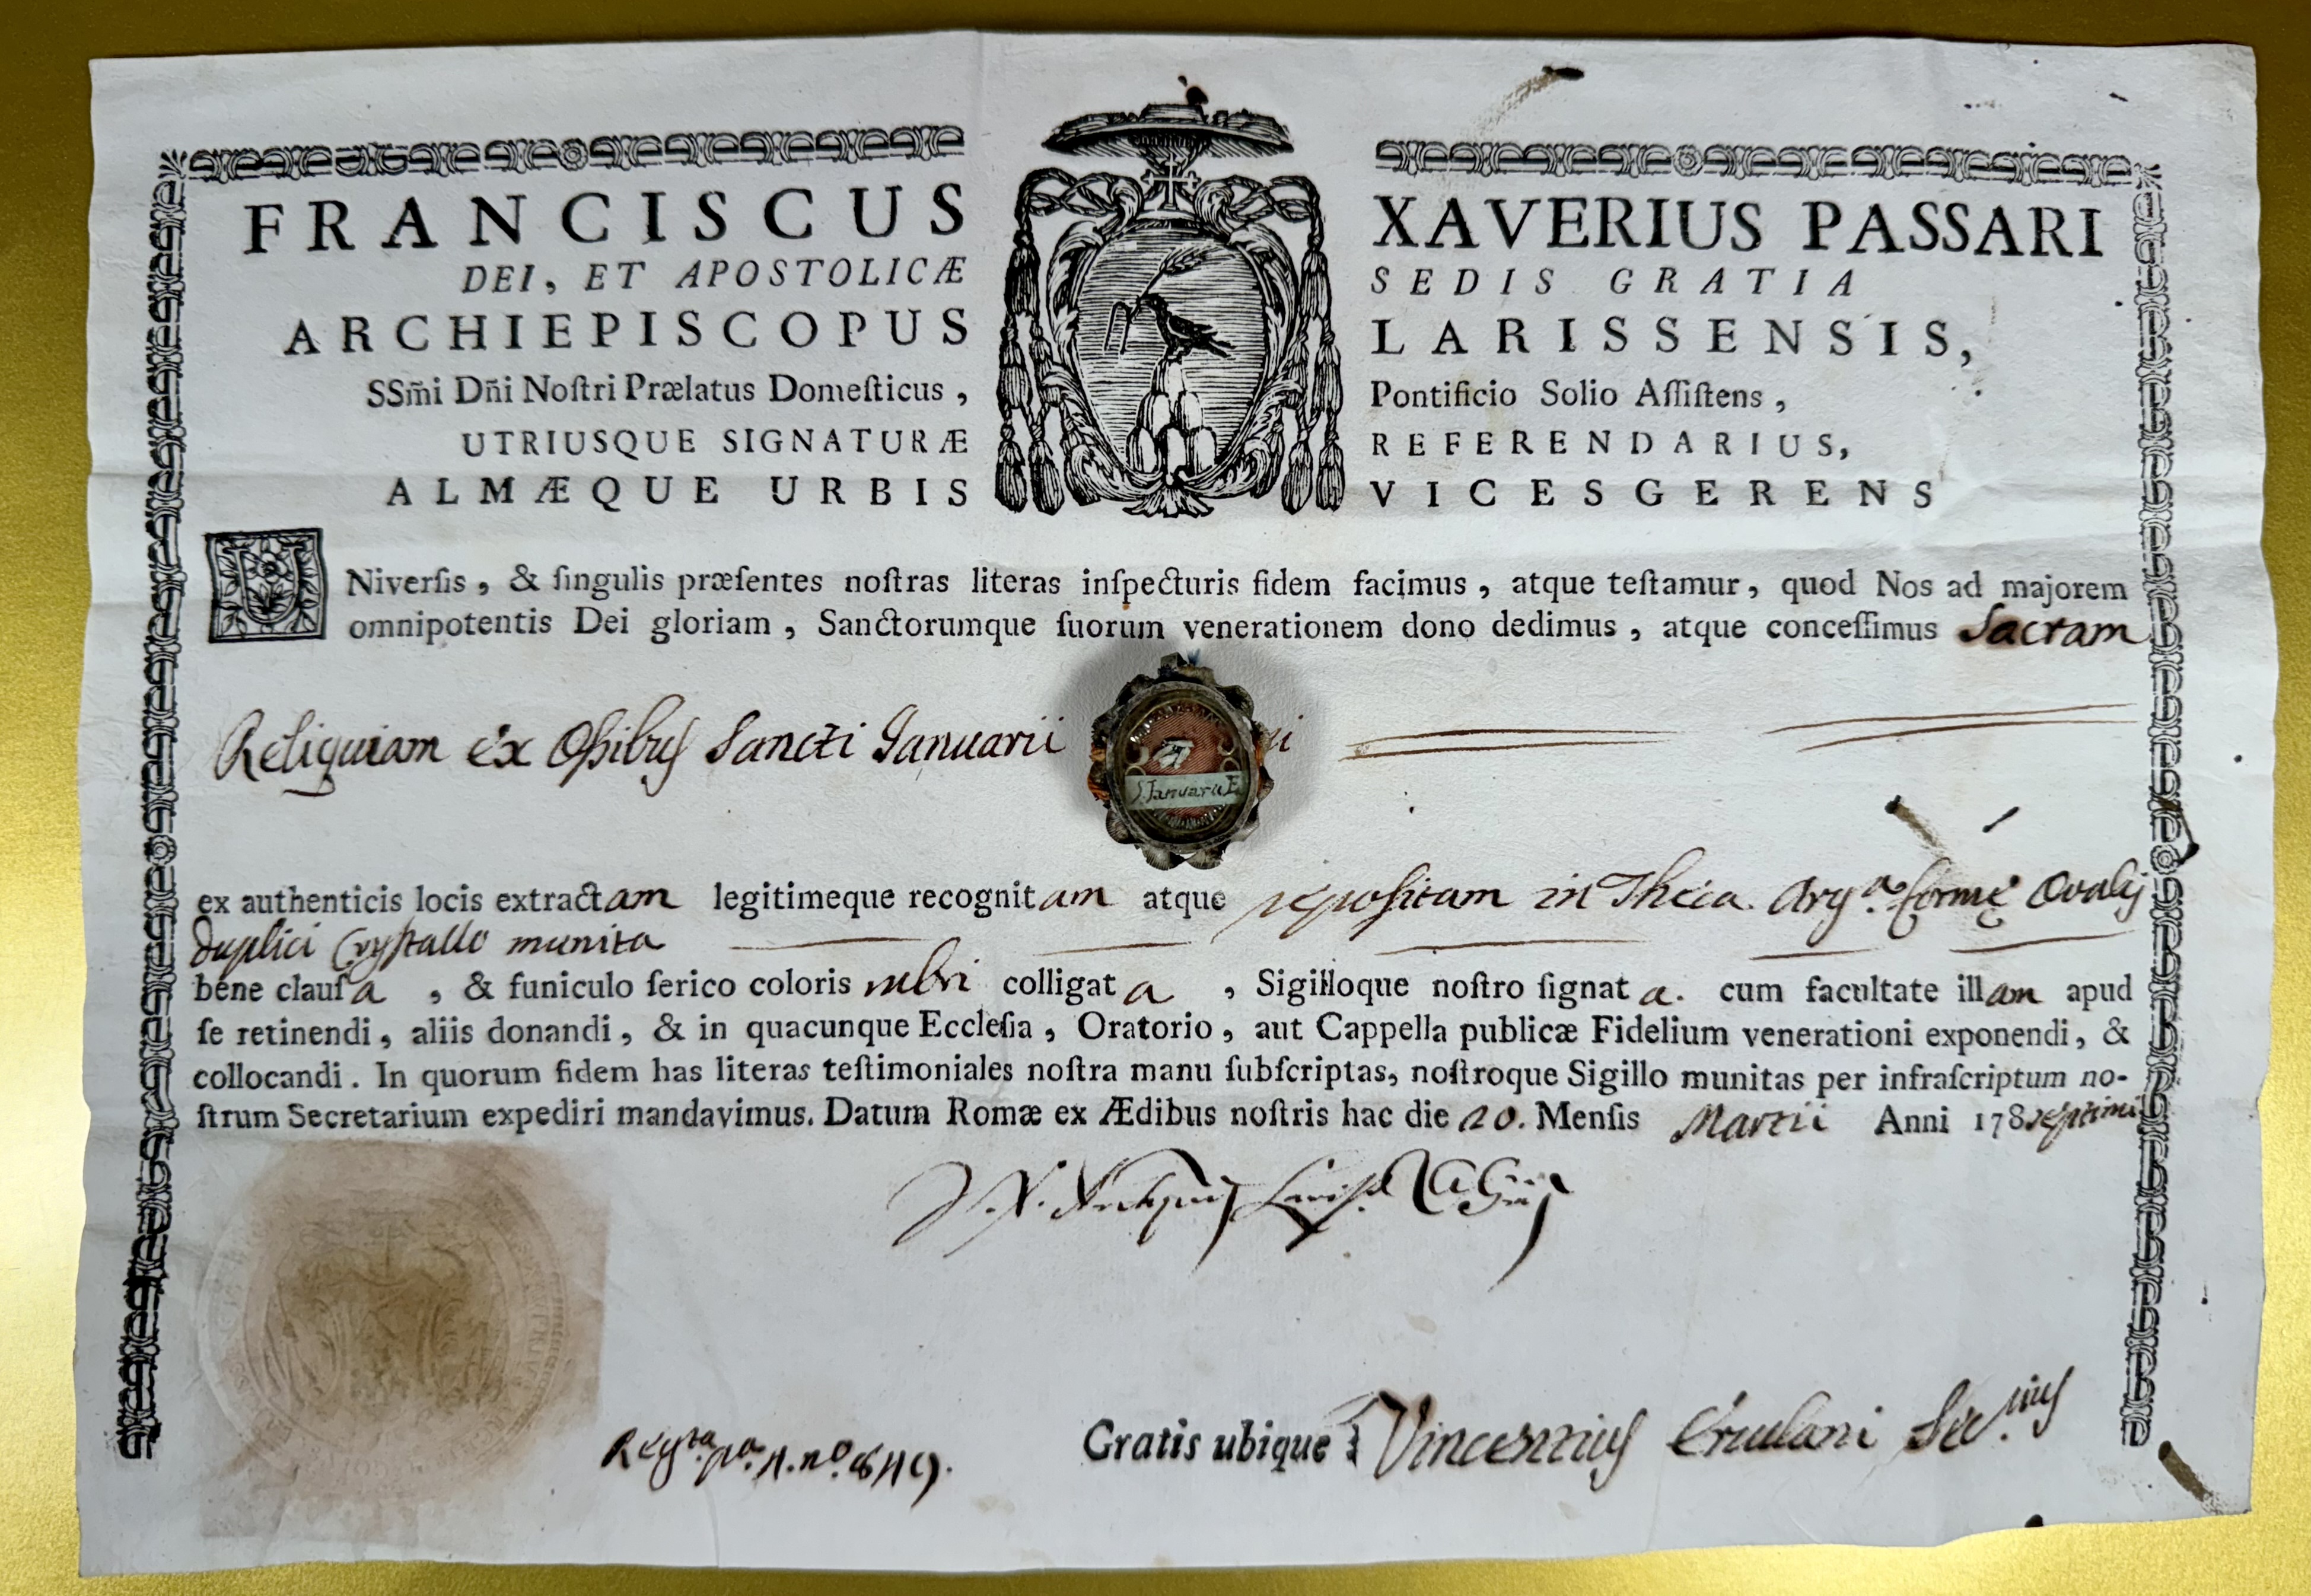 FRANCISCUS XAVERIUS PASSARI
DEI, ET APOSTOLICÆ SEDIS GRATIA
ARCHIEPISCOPUS LARISSENSIS,
SSm̃i Dñi Noſtri Prælatus Domeſticus, Pontificio Solio Aſſiſtens,
UTRIUSQUE SIGNATURÆ REFERENDARIUS,
ALMÆQUE URBIS VICESGERENS
UNiverſis, & ſingulis præſentes noſtras literas inſpecturis fidem facimus, atque teſtamur, quod Nos ad majorem
omnipotentis Dei gloriam, Sanctorumque ſuorum venerationem dono dedimus, atque conceſſimus Sacram
Reliquiam ex Oſsibus Sancti Januarii
S. Januarii E.
ex authenticis locis extractam legitimeque recognitam atque repositam in Theca Arg.ª formę Ovalis
duplici Crystallo munita
bene clauſa, & funiculo ſerico coloris rubri colligata, Sigilloque noſtro ſignata. cum facultate illam apud
ſe retinendi, aliis donandi, & in quacunque Eccleſia, Oratorio, aut Cappella publicæ Fidelium venerationi exponendi, &
collocandi. In quorum fidem has literas teſtimoniales noſtra manu ſubſcriptas, noſtroque Sigillo munitas per infraſcriptum no-
ſtrum Secretarium expediri mandavimus. Datum Romæ ex Ædibus noſtris hac die 20. Menſis Martii Anni 178septimi
Gratis ubique Vincentius Erculani Sec.rius